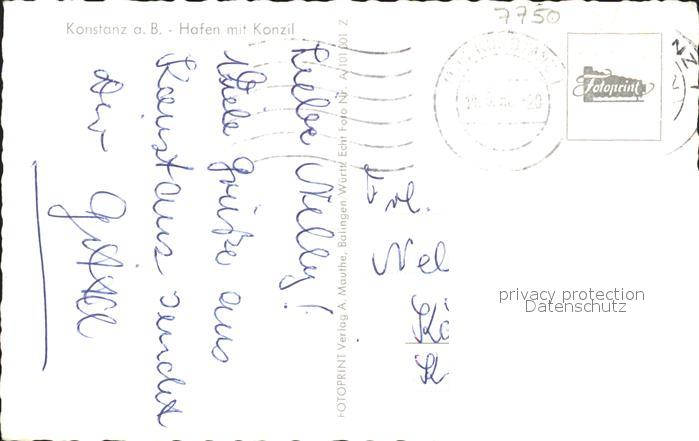 7750
Konstanz a. B. - Hafen mit Konzil
Liebe Nelly!
Viele Grüße aus
Konstanz sendet
Dir
FOTOPRINT Verlag A. Mauthe, Balingen Württ. Echt Foto Nr. A/101 001 Z
Fotoprint
Frl.
Nel
privacy protection
Datenschutz